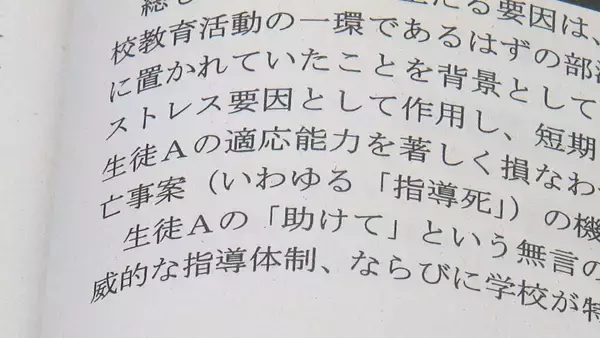 たる要因は、
校教育活動の一環であるはずの部
に置かれていたことを背景として
ストレス要因として作用し、短期
生徒Aの適応能力を著しく損なわ
亡事案（いわゆる「指導死」）の機
生徒Aの「助けて」という無言の
威的な指導体制、ならびに学校が特